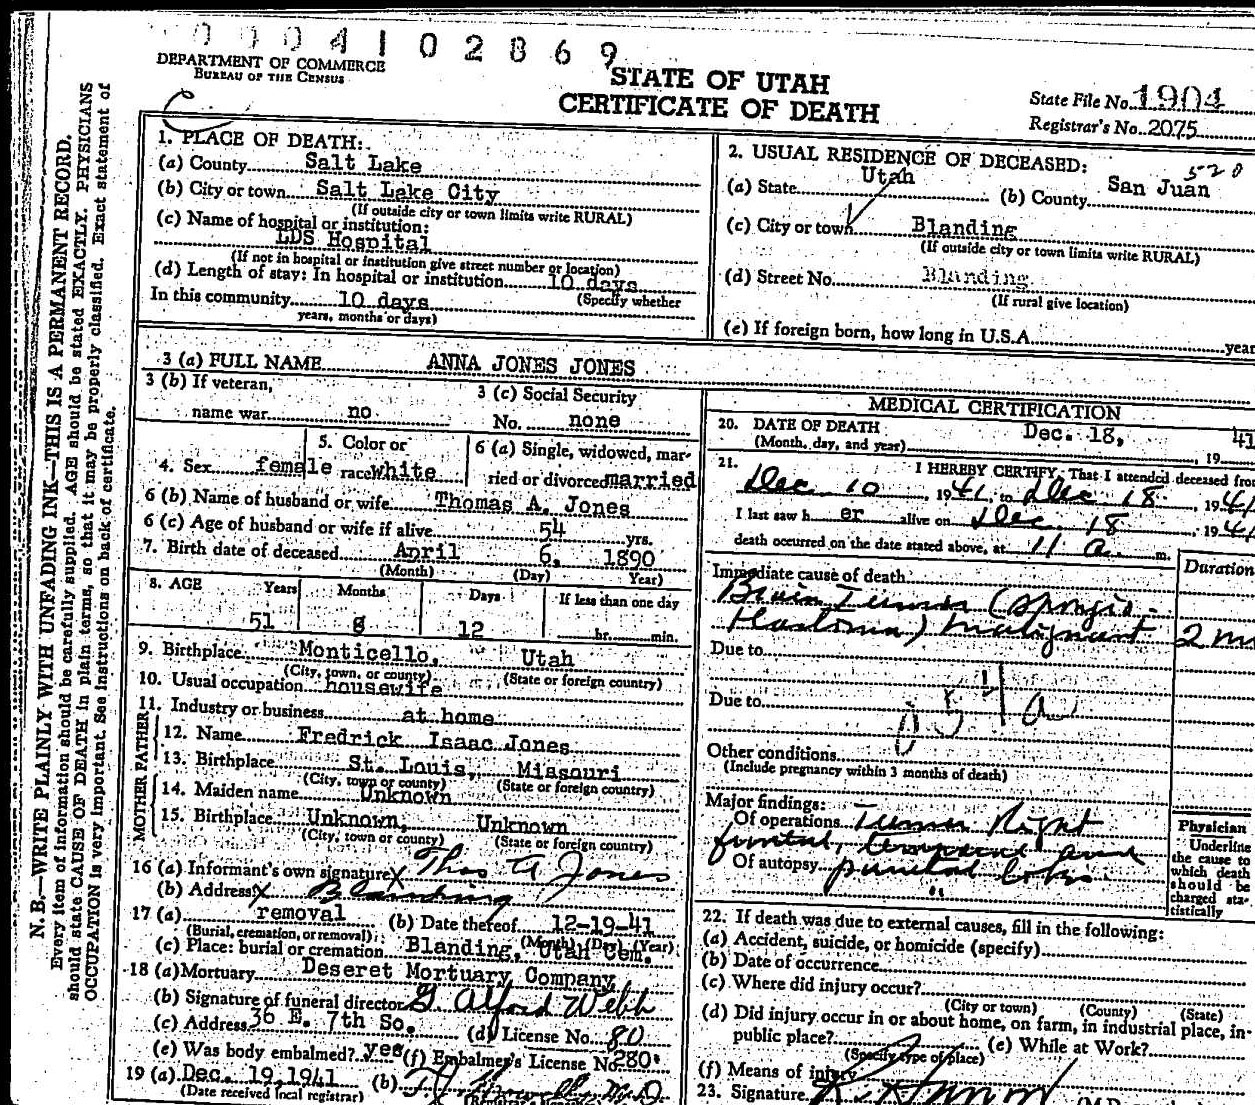 0004102869
DEPARTMENT OF COMMERCE
BUREAU OF THE CENSUS
STATE OF UTAH
CERTIFICATE OF DEATH
State File No. 1904
Registrar's No. 2075
N. B.—WRITE PLAINLY WITH UNFADING INK—THIS IS A PERMANENT RECORD.
Every item of information should be carefully supplied. AGE should be stated EXACTLY. PHYSICIANS
should state CAUSE OF DEATH in plain terms, so that it may be properly classified. Exact statement of
OCCUPATION is very important. See instructions on back of certificate.
1. PLACE OF DEATH:
(a) County Salt Lake
(b) City or town Salt Lake City
(If outside city or town limits write RURAL)
(c) Name of hospital or institution:
LDS Hospital
(If not in hospital or institution give street number or location)
(d) Length of stay: In hospital or institution 10 days
(Specify whether
In this community 10 days
years, months or days)
2. USUAL RESIDENCE OF DECEASED:
520
(a) State Utah (b) County San Juan
(c) City or town Blanding
(If outside city or town limits write RURAL)
(d) Street No. Blanding
(If rural give location)
(e) If foreign born, how long in U.S.A. year
3 (a) FULL NAME ANNA JONES JONES
3 (b) If veteran,
name war no
3 (c) Social Security
No. none
4. Sex female
5. Color or
race white
6 (a) Single, widowed, mar-
ried or divorced married
6 (b) Name of husband or wife Thomas A. Jones
6 (c) Age of husband or wife if alive 54 yrs.
7. Birth date of deceased April 6, 1890
(Month) (Day) Year)
8. AGE Years Months Days If less than one day
51 8 12 hr. min.
9. Birthplace Monticello, Utah
(City, town, or county) (State or foreign country)
10. Usual occupation housewife
11. Industry or business at home
FATHER
12. Name Fredrick Isaac Jones
13. Birthplace St. Louis, Missouri
(City, town or county) (State or foreign country)
MOTHER
14. Maiden name Unknown
15. Birthplace Unknown, Unknown
(City, town or county) (State or foreign country)
16 (a) Informant's own signature X Thos A Jones
(b) Address X Blanding
17 (a) removal (b) Date thereof 12-19-41
(Burial, cremation, or removal) (Month) (Day) (Year)
(c) Place: burial or cremation Blanding, Utah Cem.
18 (a) Mortuary Deseret Mortuary Company
(b) Signature of funeral director G. Alford Webb
(c) Address 36 E. 7th So. (d) License No. 80
(e) Was body embalmed? yes (f) Embalmer's License No. 280
19 (a) Dec. 19, 1941 (b) M.D.
(Date received local registrar)
MEDICAL CERTIFICATION
20. DATE OF DEATH
(Month, day, and year) Dec. 18, , 19 41
21. I HEREBY CERTIFY, That I attended deceased from
Dec 10, 1941, to Dec 18, 1941
I last saw her alive on Dec. 18 1941
death occurred on the date stated above, at 11 a. m.
Immediate cause of death Duration
Brain Tumor (Spongio-
blastoma) malignant 2 mo
Due to
Due to
054a
Other conditions
(Include pregnancy within 3 months of death)
Major findings:
Of operations Tumor Right
frontal, temporal and
Of autopsy parietal lobes.
Physician
Underline
the cause to
which death
should be
charged sta-
tistically
22. If death was due to external causes, fill in the following:
(a) Accident, suicide, or homicide (specify)
(b) Date of occurrence
(c) Where did injury occur?
(City or town) (County) (State)
(d) Did injury occur in or about home, on farm, in industrial place, in
public place? (e) While at Work?
(Specify type of place)
(f) Means of injury
23. Signature (M.D.